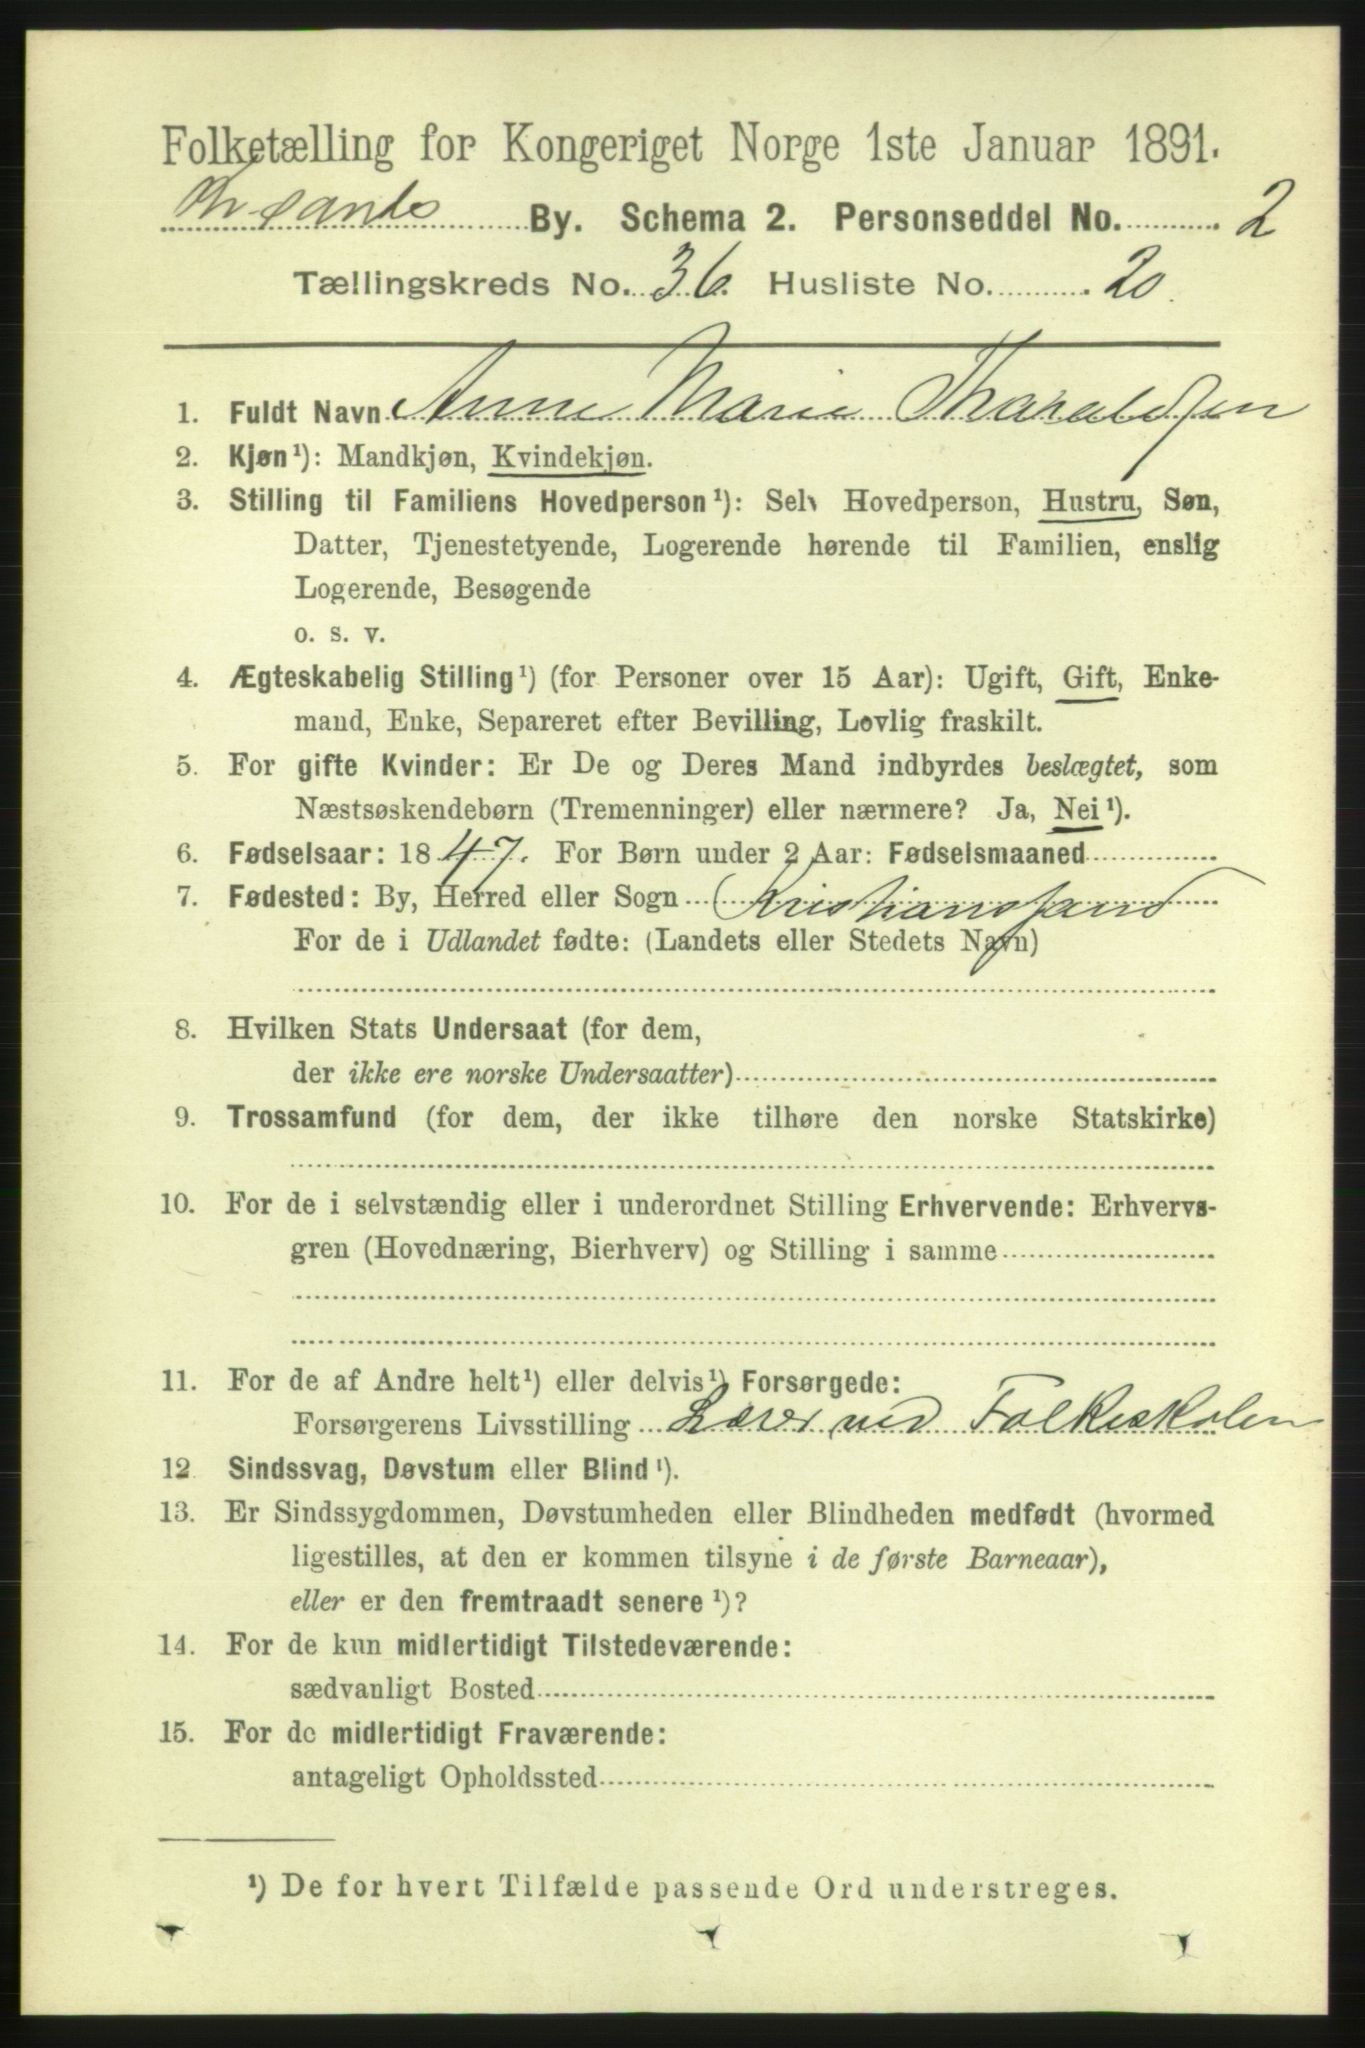 Folketælling for Kongeriget Norge 1ste Januar 1891.
Chrsands By. Schema 2. Personseddel No. 2
Tællingskreds No. 36. Husliste No. 20
1. Fuldt Navn Anne Marie Tharaldsen
2. Kjøn¹): Mandkjøn, Kvindekjøn.
3. Stilling til Familiens Hovedperson¹): Selv Hovedperson, Hustru, Søn,
Datter, Tjenestetyende, Logerende hørende til Familien, enslig
Logerende, Besøgende
o. s. v.
4. Ægteskabelig Stilling¹) (for Personer over 15 Aar): Ugift, Gift, Enke-
mand, Enke, Separeret efter Bevilling, Lovlig fraskilt.
5. For gifte Kvinder: Er De og Deres Mand indbyrdes beslægtet, som
Næstsøskendebørn (Tremenninger) eller nærmere? Ja, Nei¹).
6. Fødselsaar: 1847. For Børn under 2 Aar: Fødselsmaaned
7. Fødested: By, Herred eller Sogn Kristianssand
For de i Udlandet fødte: (Landets eller Stedets Navn)
8. Hvilken Stats Undersaat (for dem,
der ikke ere norske Undersaatter)
9. Trossamfund (for dem, der ikke tilhøre den norske Statskirke)
10. For de i selvstændig eller i underordnet Stilling Erhvervende: Erhvervs-
gren (Hovednæring, Bierhverv) og Stilling i samme
11. For de af Andre helt¹) eller delvis¹) Forsørgede:
Forsørgerens Livsstilling Lærer ved Folkeskolen
12. Sindssvag, Døvstum eller Blind¹).
13. Er Sindssygdommen, Døvstumheden eller Blindheden medfødt (hvormed
ligestilles, at den er kommen tilsyne i de første Barneaar),
eller er den fremtraadt senere¹)?
14. For de kun midlertidigt Tilstedeværende:
sædvanligt Bosted
15. For de midlertidigt Fraværende:
antageligt Opholdssted
¹) De for hvert Tilfælde passende Ord understreges.